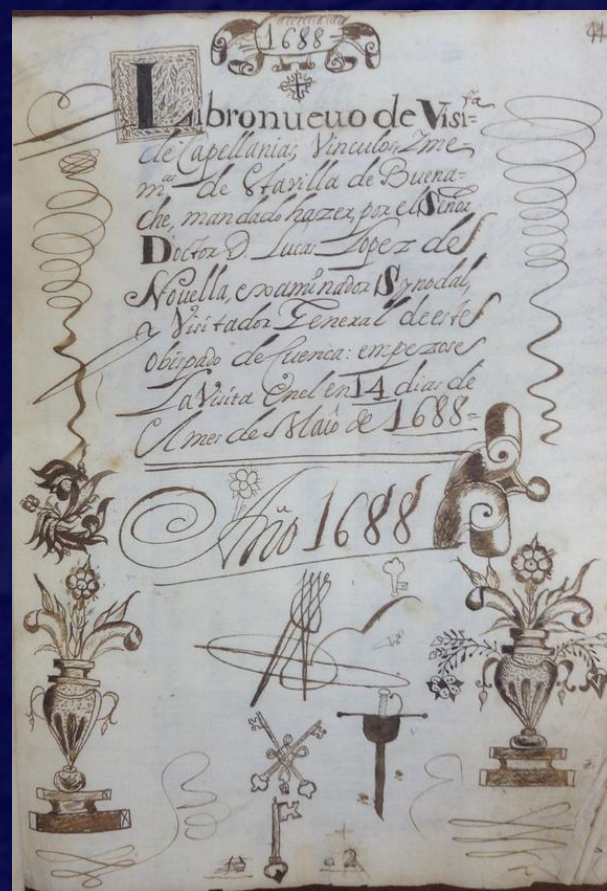 1688
41
Libro nueuo de Visi=ta
de Capellanias, Vinculos, Zme-
m.as de Sta villa de Buena-
che, mandado hazer, por el Señor
Doctor D. Lucas Lopez des
Nouella, examinador Synodal,
y Visitador General de estes
obispado de Cuenca: empezose
La Visita Enel en 14 dias de
el mes de Maio de 1688=
Año 1688